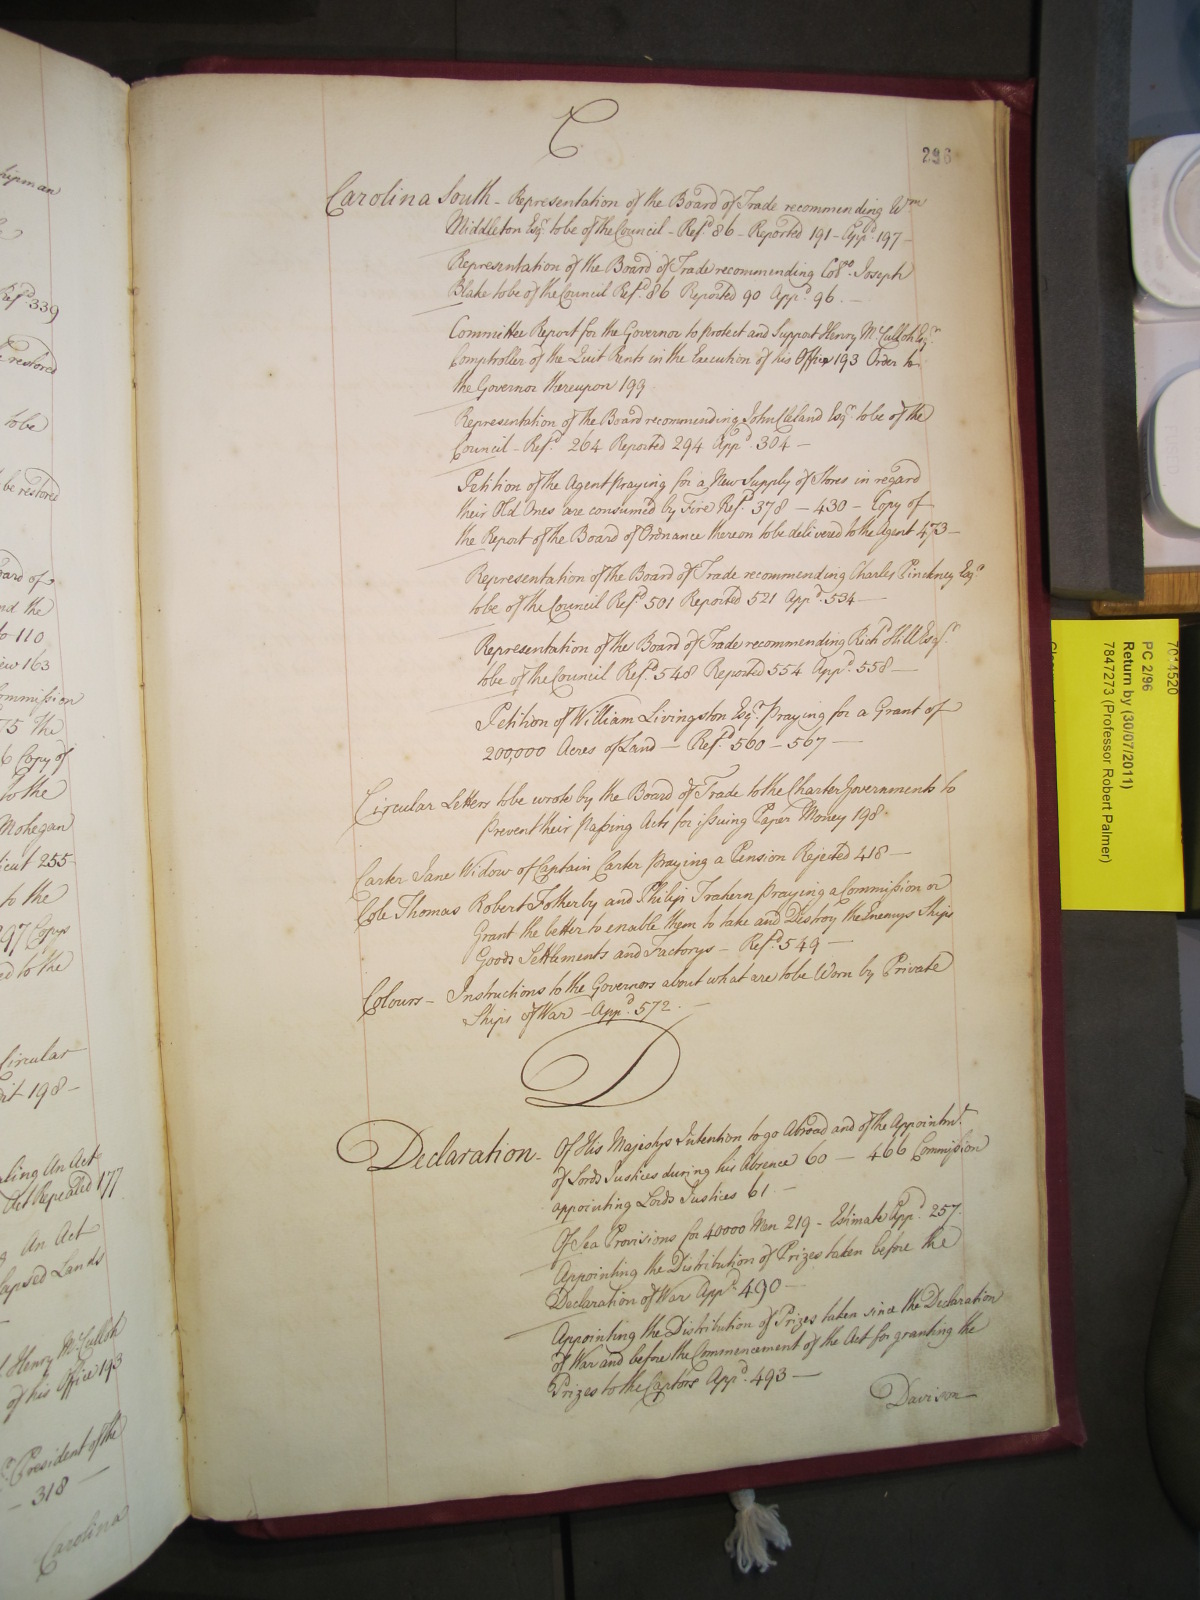 hipman
Refd 339
restored
to be
be restored
Board of
and the
to 110
iew 163
Commission
75 The
6 Copy of
to the
Mohegan
icut 255
to the
297 Copys
ed to the
Circular
dit 198 -
aling An Act
Act Repealed 177
An Act
Lapsed Lands
Henry McCulloh
of his Office 193
President of the
- 318 -
Carolina
C
296
Carolina South - Representation of the Board of Trade recommending Wm
Middleton Esqr. to be of the Council - Refd. 86 - Reported 191 - Appd. 197 -
Representation of the Board of Trade recommending Collo. Joseph
Blake to be of the Council Refd. 86 Reported 90 Appd. 96. -
Committee Report for the Governor to protect and Support Henry McCulloh Esqr.
Comptroller of the Quit Rents in the Execution of his Office 193 Order to
the Governor thereupon 199
Representation of the Board recommending John Cleland Esqr. to be of the
Council - Refd. 264 Reported 294 Appd. 304 -
Petition of the Agent praying for a New Supply of Stores in regard
their Old Ones are consumed by Fire Refd. 378 - 430 - Copy of
the Report of the Board of Ordnance thereon to be delivered to the Agent 473 -
Representation of the Board of Trade recommending Charles Pinckney Esqr.
to be of the Council Refd. 501 Reported 521 Appd. 534 -
Representation of the Board of Trade recommending Richd Hill Esqr.
to be of the Council Refd. 548 Reported 554 Appd. 558 -
Petition of William Livingston Esqr. praying for a Grant of
200,000 Acres of Land - Refd. 560 - 567 -
Circular Letters to be wrote by the Board of Trade to the Charter Governments to
prevent their passing Acts for issuing Paper Money 198.
Carter Jane Widow of Captain Carter praying a Pension Rejected 418 -
Cole Thomas Robert Fotherby and Philip Trahern praying a Commission or
Grant the better to enable them to take and Destroy the Enemys Ships
Goods Settlements and Factorys - Refd. 549 -
Colours - Instructions to the Governors about what are to be Worn by Private
Ships of War - Appd. 572. -
D
Declaration - Of His Majestys Intention to go Abroad and of the Appointmt.
of Lords Justices during his Absence 60 - 466 Commission
appointing Lords Justices 61. -
Of Sea Provisions for 40000 Men 219 - Estimate Appd. 257
Appointing the Distribution of Prizes taken before the
Declaration of War Appd. 490 -
Appointing the Distribution of Prizes taken since the Declaration
of War and before the Commencement of the Act for granting the
Prizes to the Captors Appd. 493 -
Davison
PC 2/96
Return by (30/07/2011)
7847273 (Professor Robert Palmer)